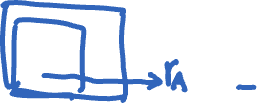 r_A -